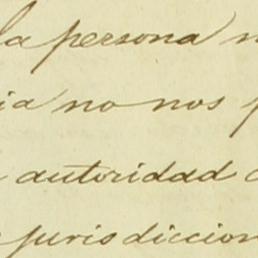 la persona
ia no nos
autoridad
jurisdiccion